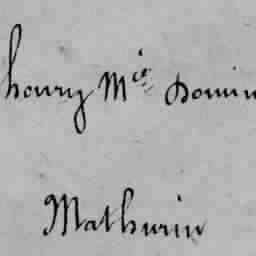 houry Mie Domin
Mathurin